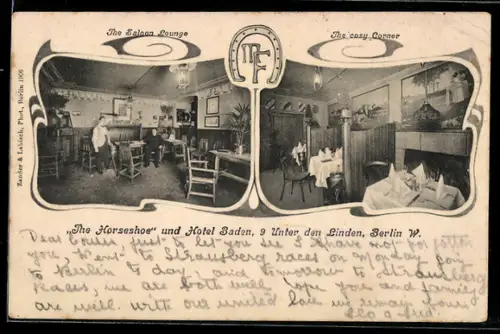 The Saloon Lounge
The cosy Corner
MF
Zander & Labisch, Phot., Berlin 1906
„The Horseshoe" und Hotel Baden, 9 Unter den Linden, Berlin W.
Dear Louie, just to let you see I have not forgotten
you, Went to Strausberg races on Monday
to Berlin to day, and tomorrow to Strausberg
Races, we are both well hope you and family
are well. with our united love we remain your